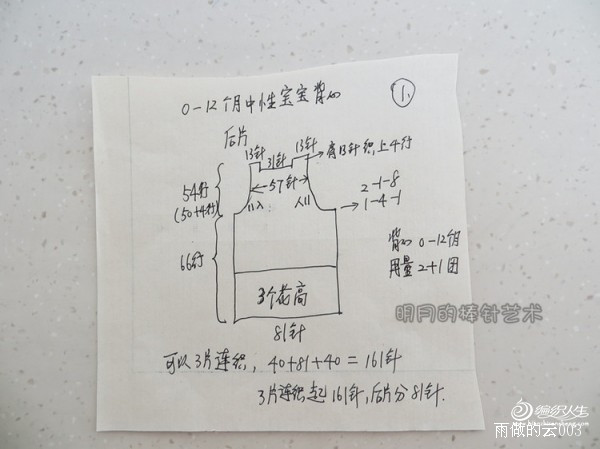 0-12个月中性宝宝背心
①
后片
13针
31针
13针
肩13针织上4行
54行
(50+4行)
57针
2-1-8
1-4-1
II入
人II
66行
背心 0-12个月
用量 2+1团
3个花高
明月的棒针艺术
81针
可以3片连织, 40+81+40=161针
3片连织起161针,后片分81针.
编织人生
雨做的云003